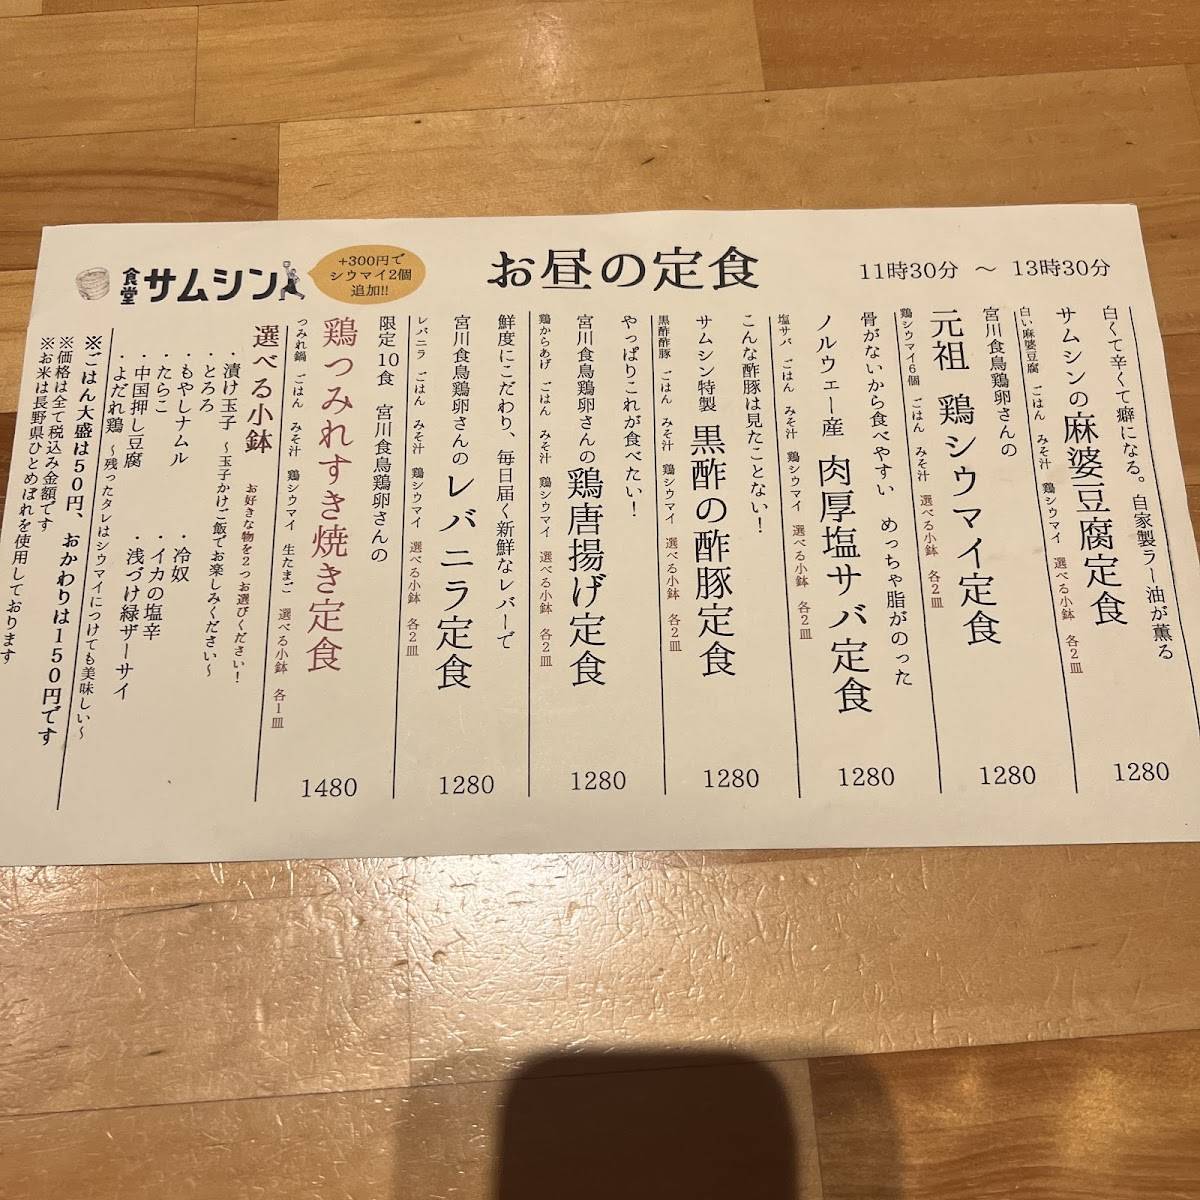 食堂サムシン
+300円で
シウマイ2個
追加!!
お昼の定食
11時30分 ～ 13時30分
白くて辛くて癖になる。自家製ラー油が薫る
サムシンの麻婆豆腐定食
白い麻婆豆腐 ごはん みそ汁 鶏シウマイ 選べる小鉢 各2皿
1280
宮川食鳥鶏卵さんの
元祖 鶏シウマイ定食
鶏シウマイ6個 ごはん みそ汁 選べる小鉢 各2皿
1280
骨がないから食べやすい めっちゃ脂がのった
ノルウェー産 肉厚塩サバ定食
塩サバ ごはん みそ汁 鶏シウマイ 選べる小鉢 各2皿
1280
こんな酢豚は見たことない！
サムシン特製 黒酢の酢豚定食
黒酢酢豚 ごはん みそ汁 鶏シウマイ 選べる小鉢 各2皿
1280
やっぱりこれが食べたい！
宮川食鳥鶏卵さんの鶏唐揚げ定食
鶏からあげ ごはん みそ汁 鶏シウマイ 選べる小鉢 各2皿
1280
鮮度にこだわり、毎日届く新鮮なレバーで
宮川食鳥鶏卵さんのレバニラ定食
レバニラ ごはん みそ汁 鶏シウマイ 選べる小鉢 各2皿
1280
限定10食 宮川食鳥鶏卵さんの
鶏つみれすき焼き定食
つみれ鍋 ごはん みそ汁 鶏シウマイ 生たまご 選べる小鉢 各1皿
1480
選べる小鉢 お好きな物を2つお選びください！
・漬け玉子 ～玉子かけご飯でお楽しみください～
・とろろ ・冷奴
・もやしナムル ・イカの塩辛
・たらこ ・浅づけ緑ザーサイ
・中国押し豆腐
・よだれ鶏 ～残ったタレはシウマイにつけても美味しい～
※ごはん大盛は50円、おかわりは150円です
※価格は全て税込み金額です
※お米は長野県ひとめぼれを使用しております